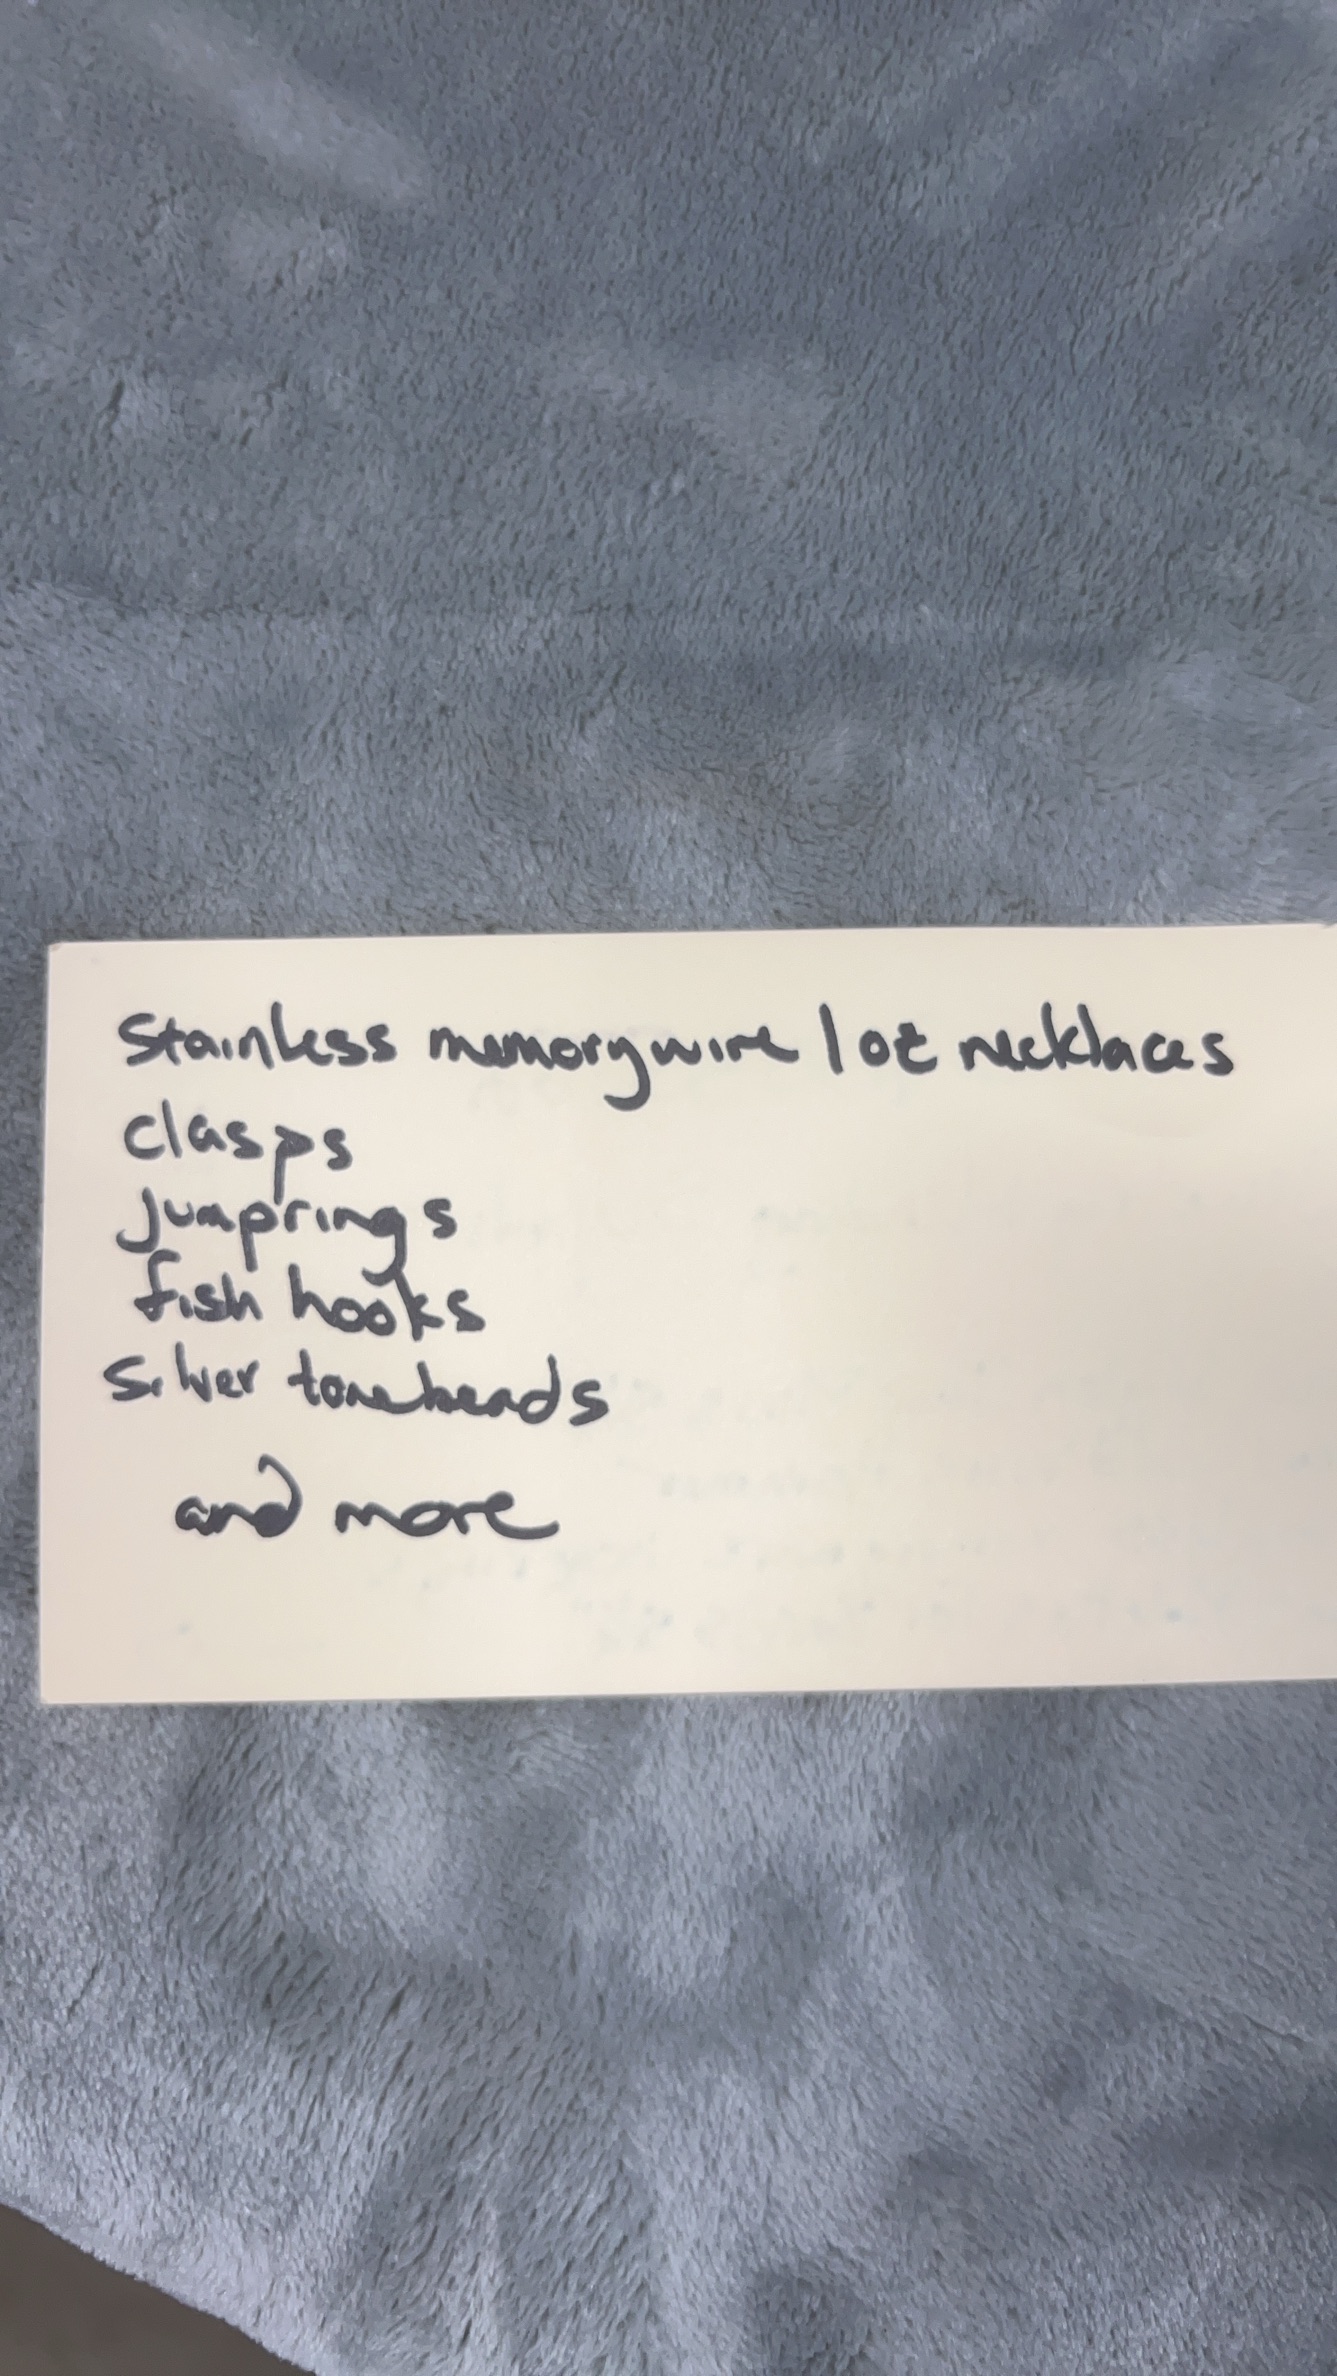 Stainless memorywire lot necklaces
clasps
jumprings
fish hooks
Silver tone beads
and more